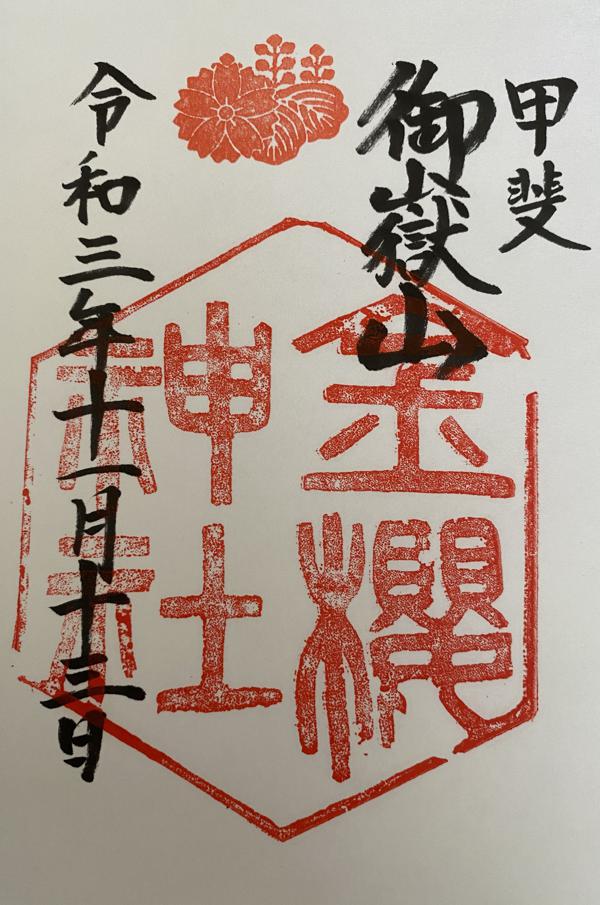 甲斐
御嶽山
金櫻
神社
令和三年十一月十三日